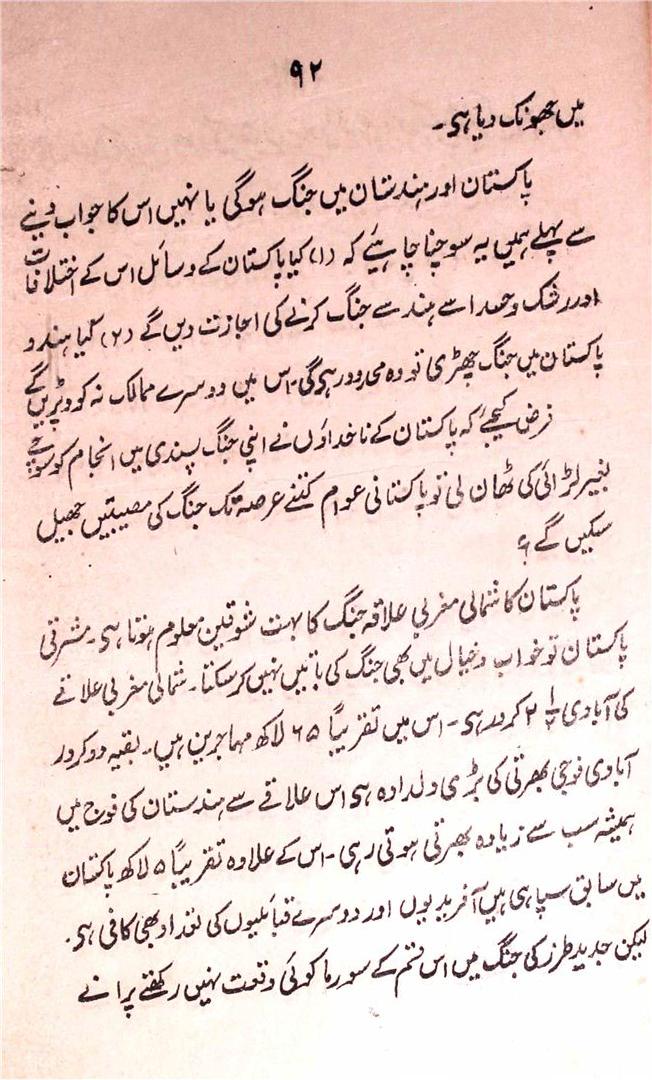 ۹۲
میں جھونک دیا ہی۔
پاکستان اور ہندستان میں جنگ ہوگی یا نہیں اس کا جواب دینے
سے پہلے ہمیں یہ سوچنا چاہیئے کہ (۱) کیا پاکستان کے وسائل اس کے اختلافات
اور رشک وحسد اسے ہند سے جنگ کرنے کی اجازت دیں گے (۲) کیا ہند و
پاکستان میں جنگ چھڑی تو وہ محدود رہی گی۔ اس میں دوسرے ممالک نہ کود پڑیں گے
فرض کیجیے کہ پاکستان کے ناخداؤں نے اپنی جنگ پسندی میں انجام کو سوچے
بغیر لڑائی کی ٹھان لی تو پاکستانی عوام کتنے عرصہ تک جنگ کی مصیبتیں جھیل
سکیں گے ؟
پاکستان کا شمالی مغربی علاقہ جنگ کا بہت شوقین معلوم ہوتا ہی۔ مشرقی
پاکستان تو خواب و خیال میں بھی جنگ کی باتیں نہیں کرسکتا۔ شمالی مغربی علاقے
کی آبادی ۲ ½ کرور ہی۔ اس میں تقریباً ۶۵ لاکھ مہاجرین ہیں۔ بقیہ دو کرور
آبادی فوجی بھرتی کی بڑی دلدادہ ہی اس علاقے سے ہندستان کی فوج میں
ہمیشہ سب سے زیادہ بھرتی ہوتی رہی۔ اس کے علاوہ تقریباً ۵ لاکھ پاکستان
میں سابق سپاہی ہیں آفریدیوں اور دوسرے قبائلیوں کی تعداد بھی کافی ہی۔
لیکن جدید طرز کی جنگ میں اس قسم کے سورما کوئی وقعت نہیں رکھتے پرانے